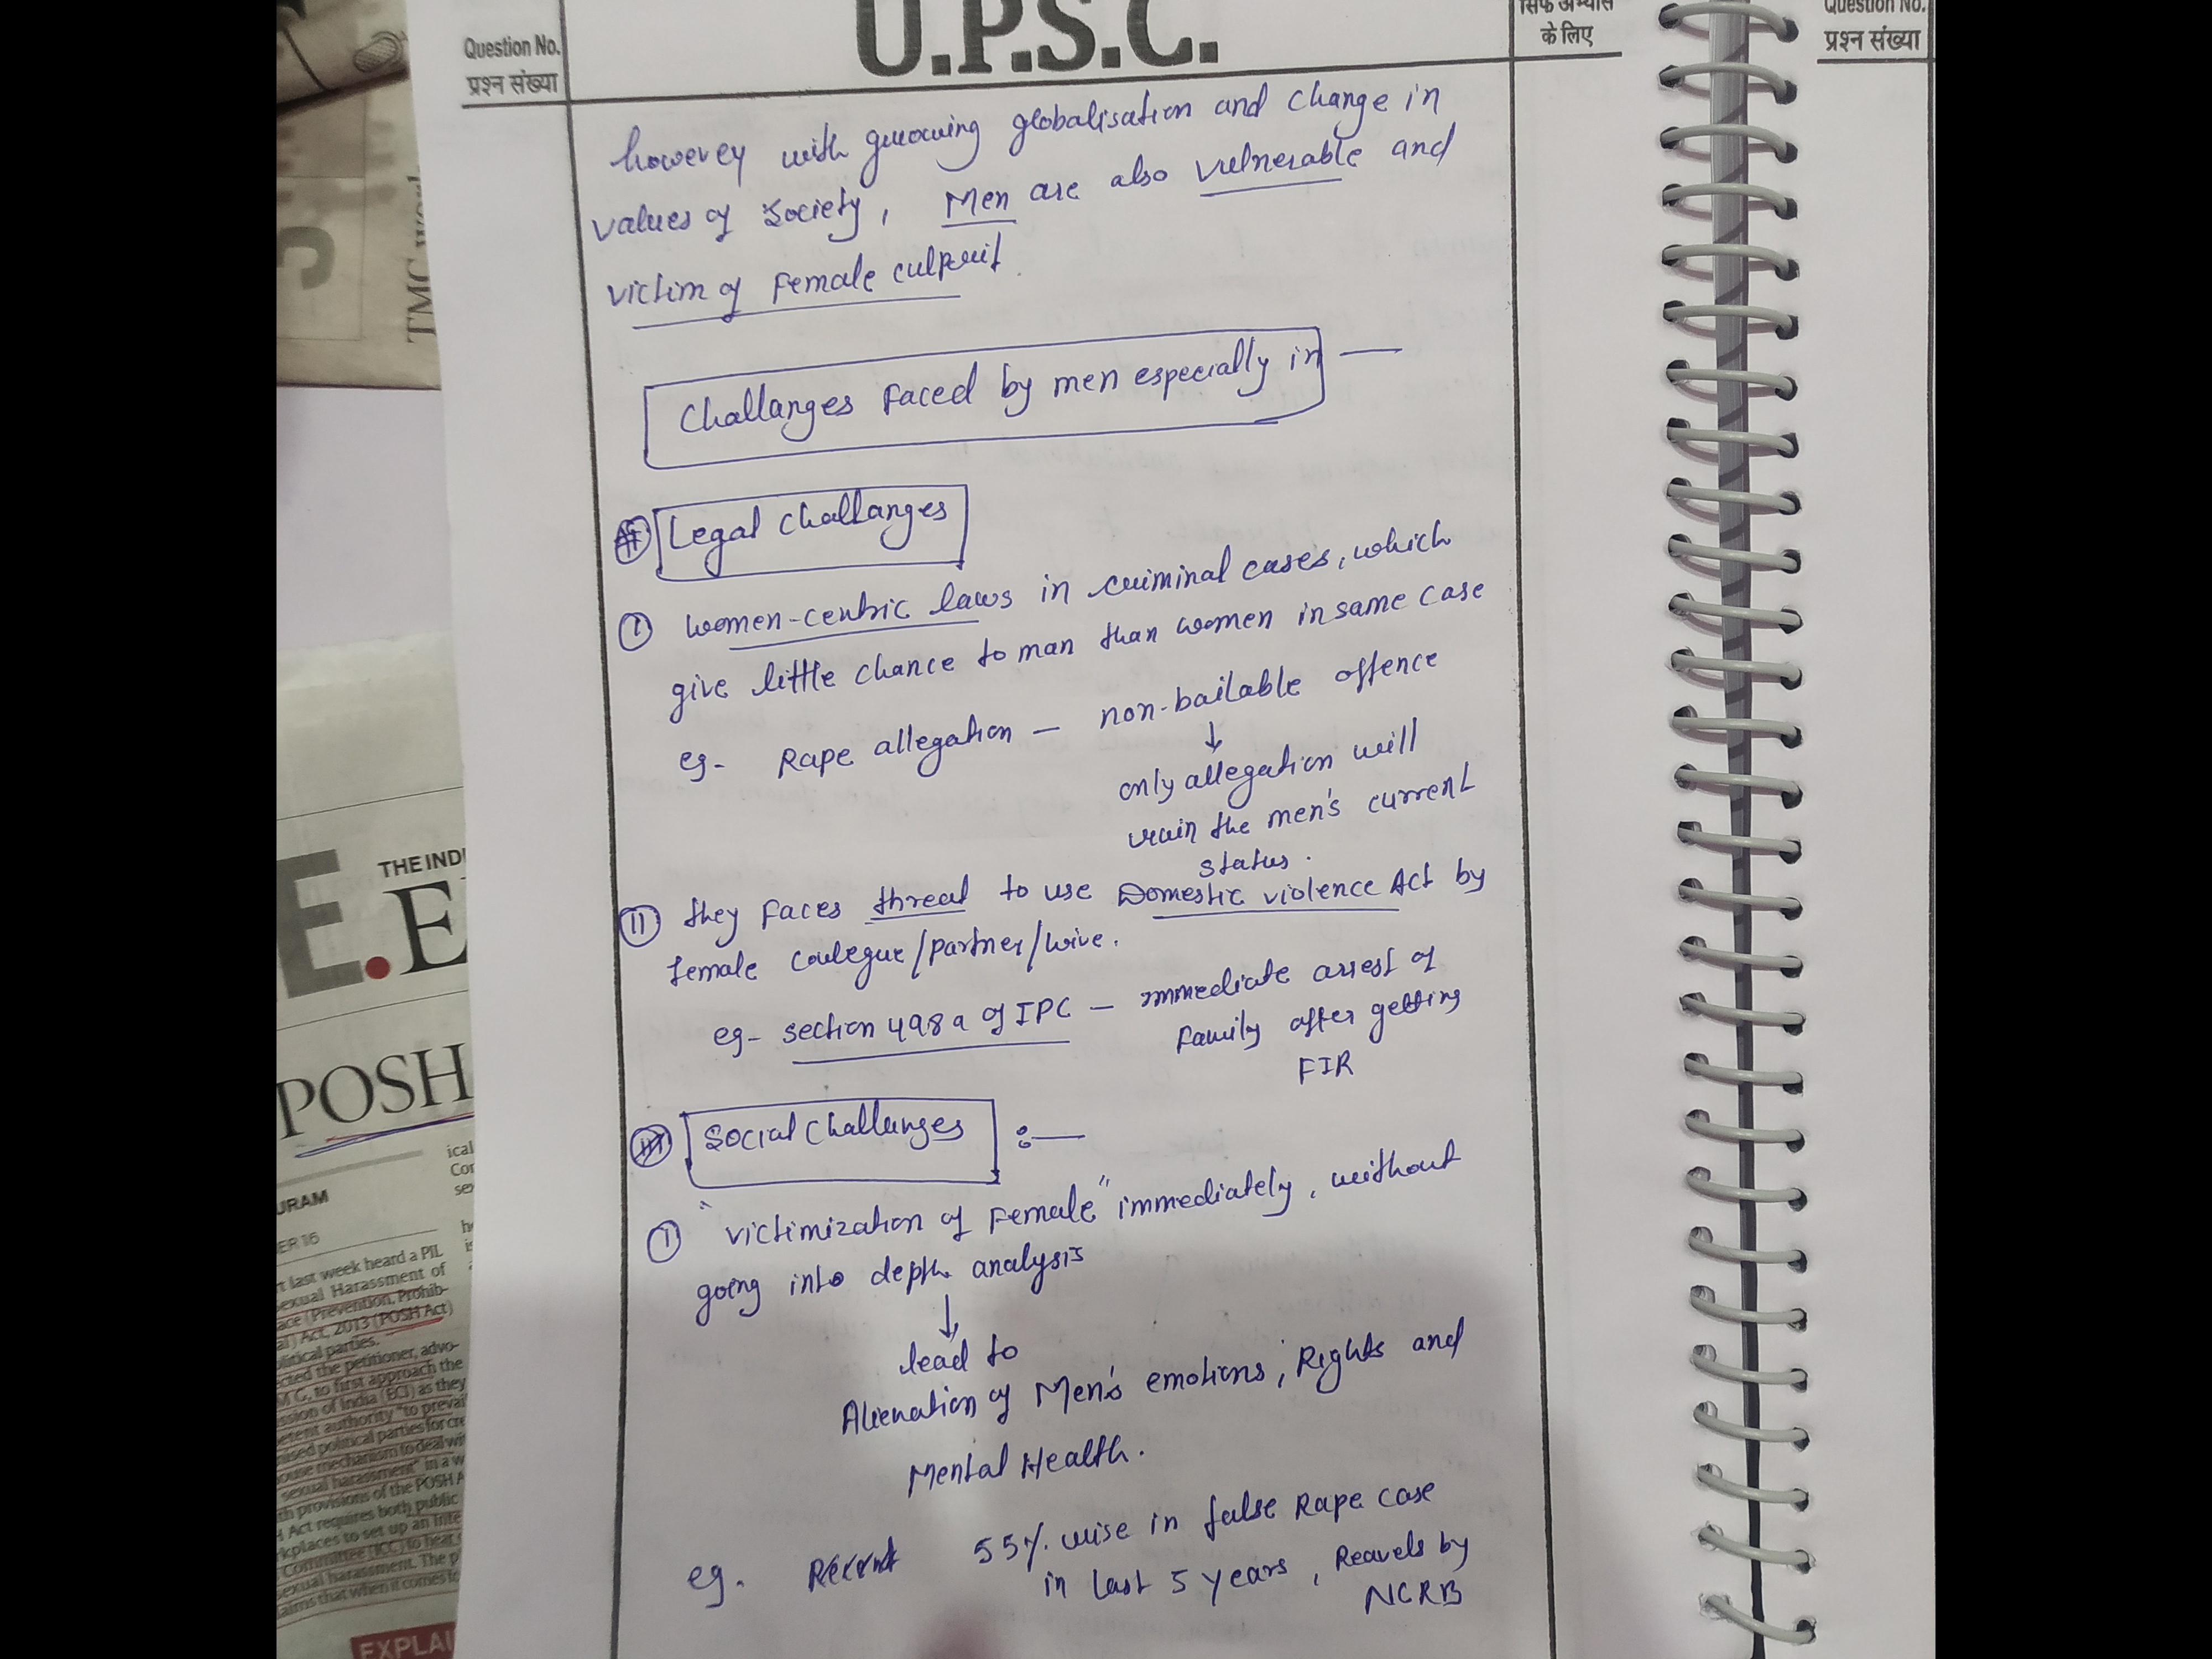 U.P.S.C.
Question No.
प्रश्न संख्या
सिर्फ अभ्यास
के लिए
Question No.
प्रश्न संख्या
howerey with growing globalisation and change in
values of society, Men are also vulnerable and
victim of Female culprit.
Challanges Faced by men especially in —
Legal challanges
I women-centric laws in criminal cases, which
give little chance to man than women in same case
eg- Rape allegation — non-bailable offence
↓
only allegation will
ruin the men's current
status.
II they Faces threat to use Domestic violence Act by
Female coulegue/partner/wive.
eg- section 498a of IPC — immediate arrest of
Family after getting
FIR
Social challanges :—
I "victimization of Female" immediately, without
going into depth analysis
↓
lead to
Alienation of Men's emotions, Rights and
Mental Health.
eg. 55% rise in false Rape case
in last 5 years, Reavels by
NCRB
TMC
THE INDI
E.E
POSH
URAM
ER 16
ical
Cor
sex
t last week heard a PIL
exual Harassment of
ace (Prevention, Prohib-
al) Act, 2013 (POSH Act)
olitical parties.
cted the petitioner, advo-
M G, to first approach the
ssion of India (ECI) as they
etent authority "to prevai
nised political parties for cre
ouse mechanism to deal wi
sexual harassment" in a w
th provisions of the POSH A
Act requires both public
rkplaces to set up an Inte
Committee (ICC) to hear
exual harassment. The p
aims that when it comes to
EXPLAI